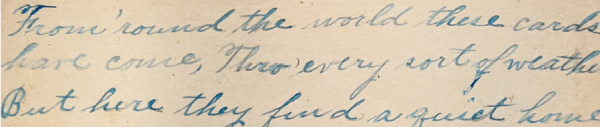 From 'round the world these cards
have come, Thro' every sort of weathe
But here they find a quiet home